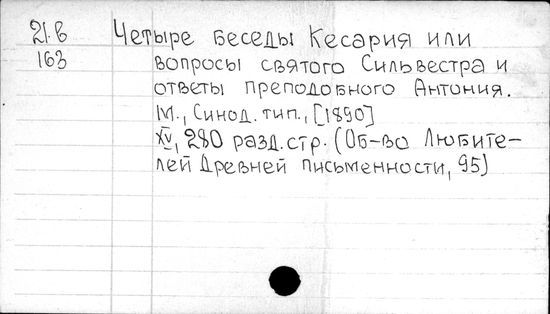 21.в Четыре беседы Кесария или
163 вопросы святого Сильвестра и
ответы преподобного Антония.
М., Синод. тип., [1890]
XV, 280 разд. стр. (Об-во Любите-
лей Древней Письменности, 95)